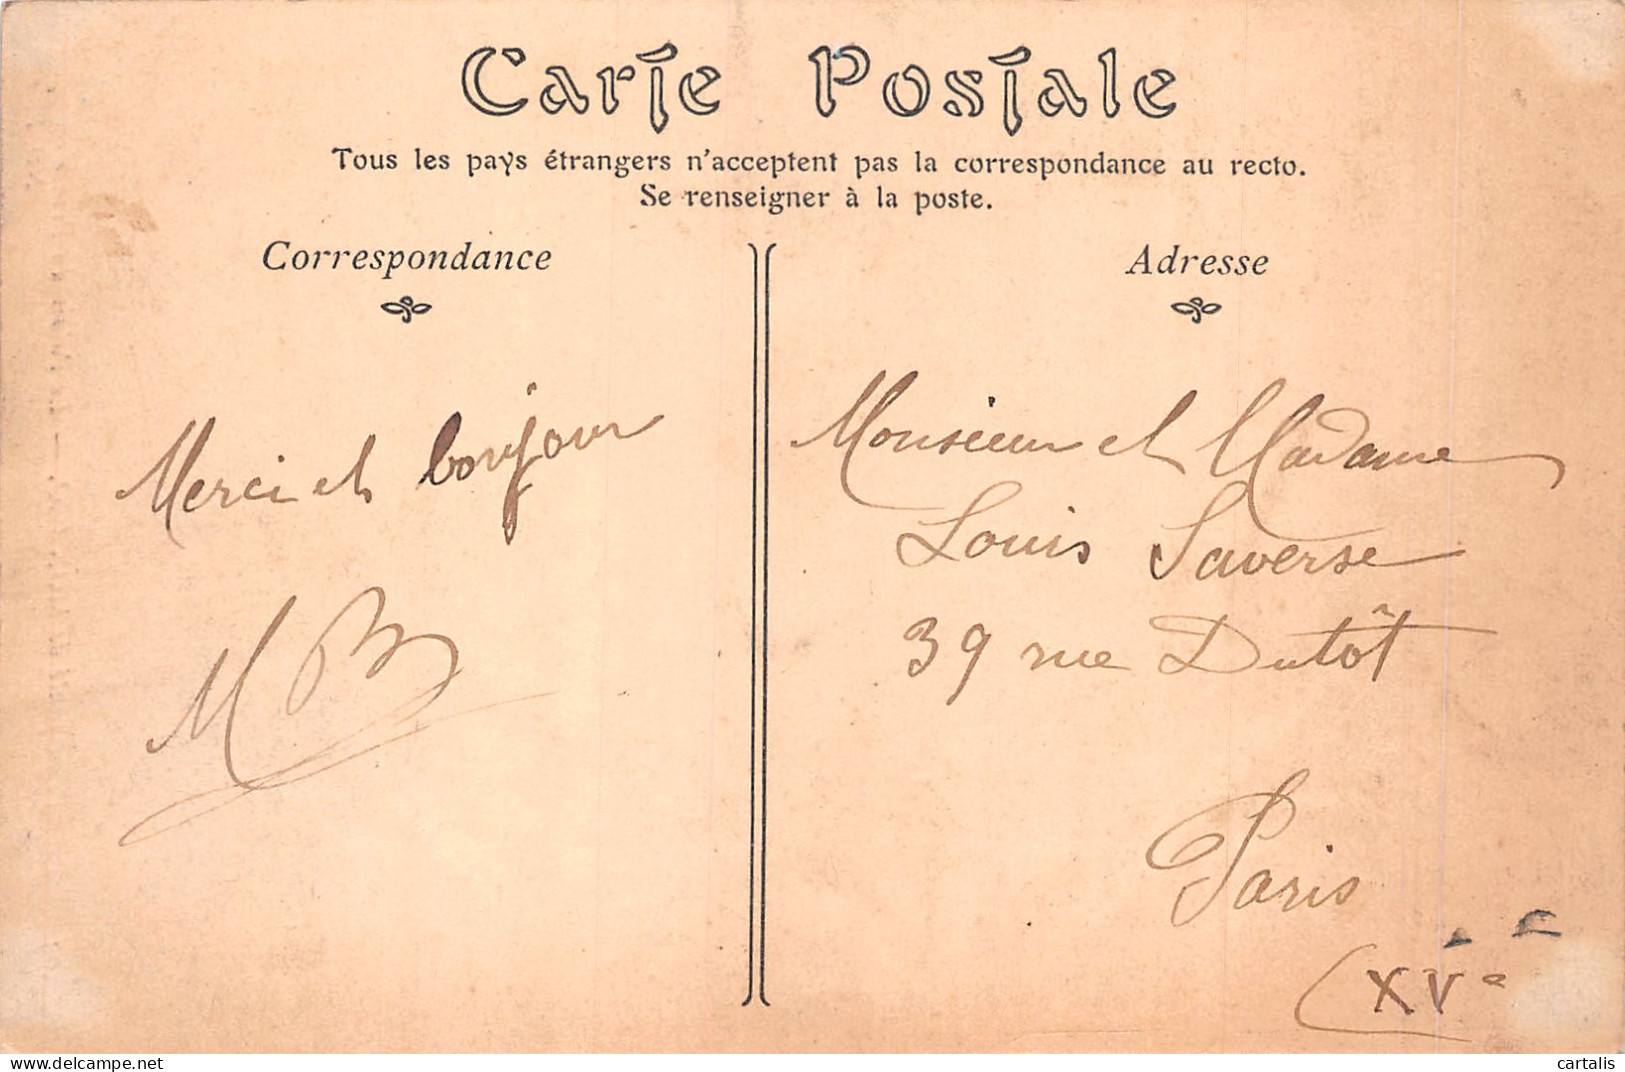 Carte Postale
Tous les pays étrangers n'acceptent pas la correspondance au recto.
Se renseigner à la poste.
Correspondance
Adresse
Merci et bonjour
MB
Monsieur et Madame
Louis Saverse
39 rue Dutôt
Paris
(XVe
cartalis